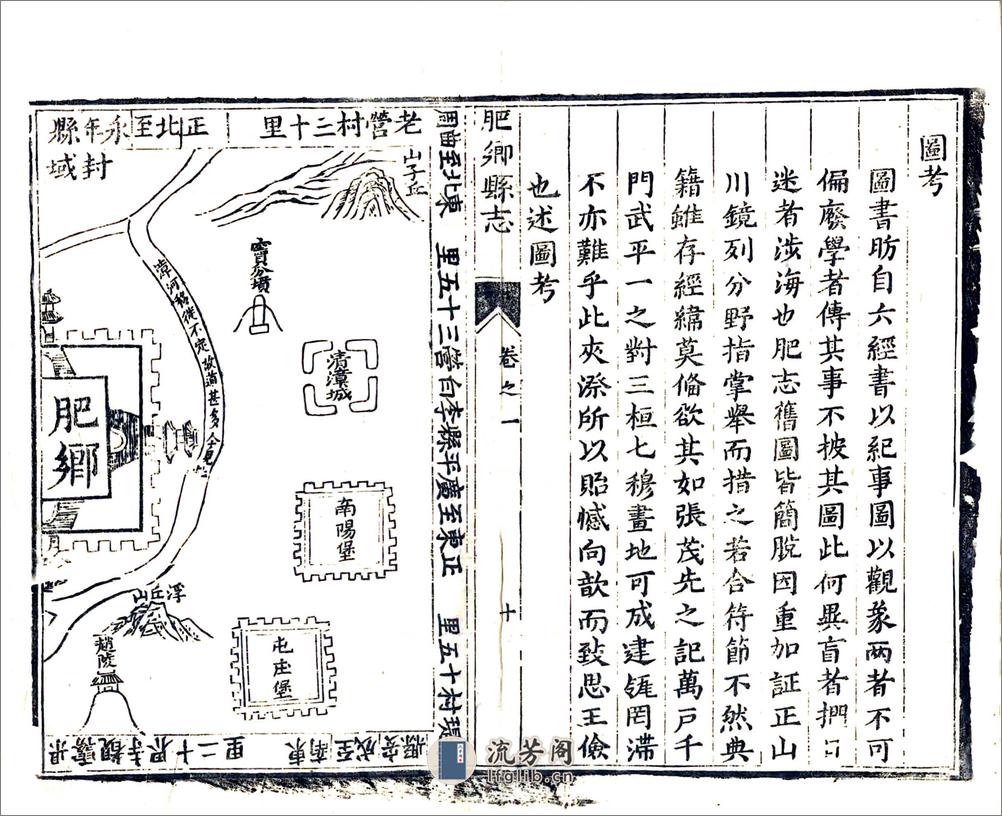 圖考
圖書昉自六經書以紀事圖以觀象两者不可
偏廢學者傳其事不披其圖此何異盲者捫日
迷者涉海也肥志舊圖皆簡脫因重加証正山
川鏡列分野指掌舉而措之若合符節不然典
籍雖存經緯莫偹欲其如張茂先之記萬戶千
門武平一之對三桓七穆畫地可成建𨧱罔滯
不亦難乎此夾漈所以貽憾向歆而致思王儉
也述圖考
肥鄉縣志
卷之一
十
東北至曲周
里五十三管白李縣平廣至東正
里五十村
正北至永年縣
老營村三十里
封域
山子丘
竇公墳
漳河移徙不定故道甚多今見
清漳城
肥鄉
南陽堡
浮丘山
趙陵
屯庄堡
東南至成安縣
里二十
流芳阁
lfglib.cn